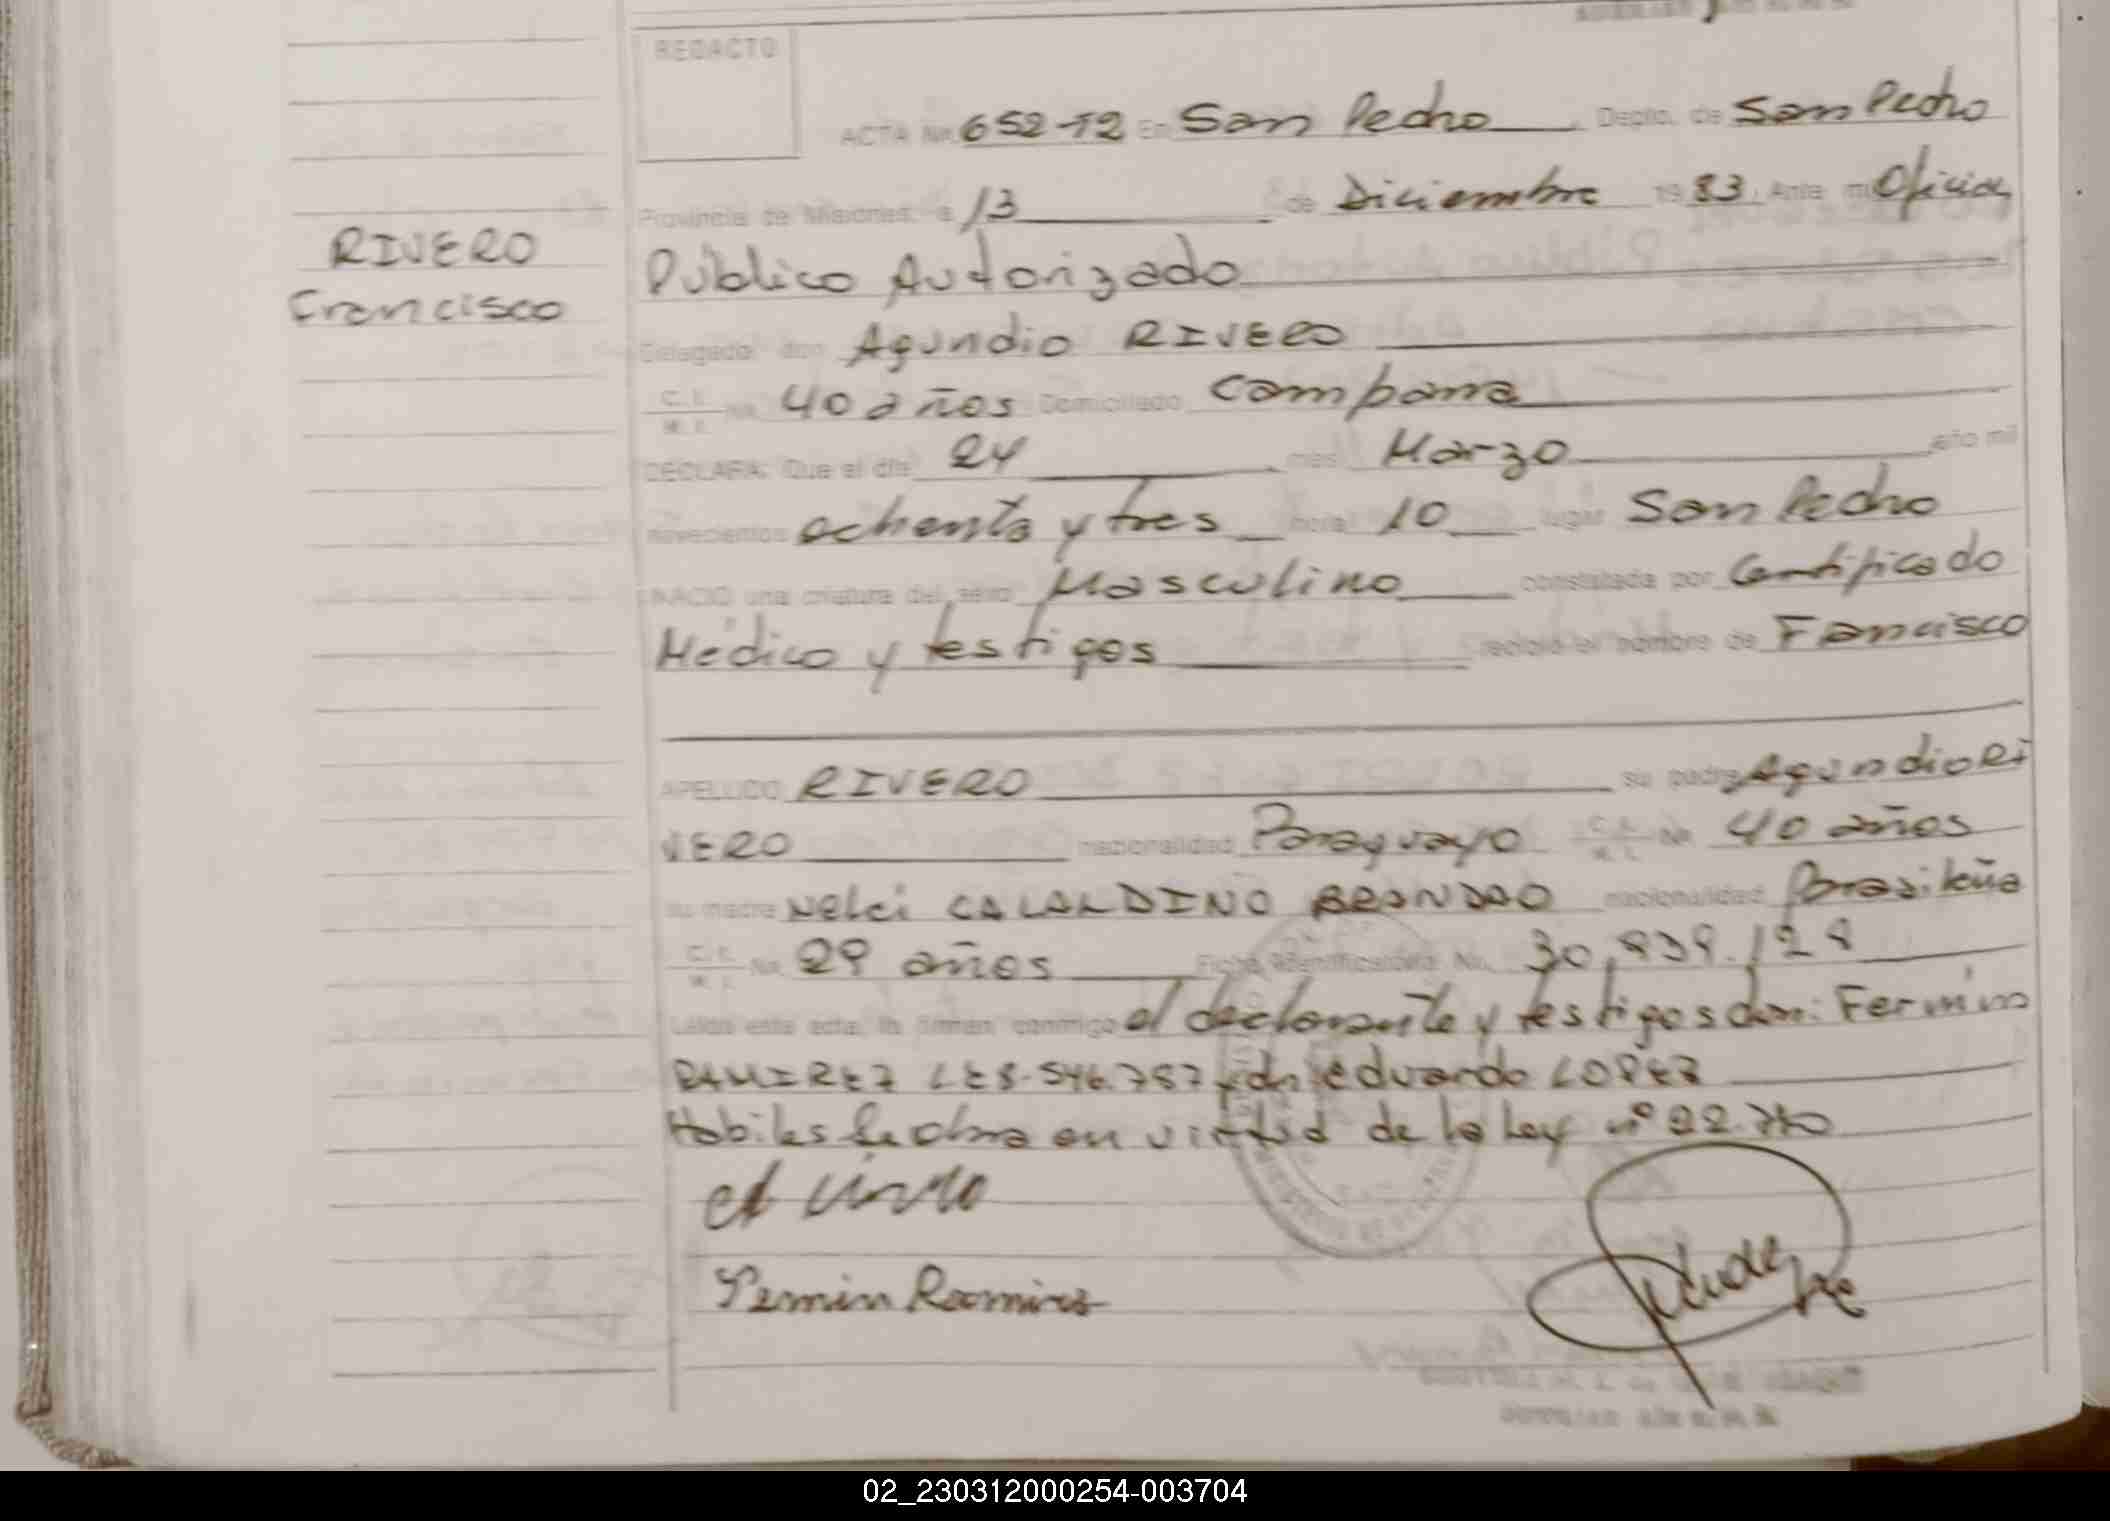 REDACTO
ACTA No. 652-T2 En San Pedro Depto. de San Pedro
Provincia de Misiones, a 13 de Diciembre 1983. Ante mi Oficial
RIVERO
Francisco
Público Autorizado
Delegado don Agundio RIVERO
C. I. M. I. No. 40 años Domiciliado Campana
DECLARA: Que el día 24 mes Marzo año mil
novecientos ochenta y tres hora 10 lugar San Pedro
NACIO una criatura del sexo Masculino constatada por Certificado
Médico y testigos recibió el nombre de Francisco
APELLIDO RIVERO su padre Agundio RI
VERO nacionalidad Paraguayo C. I. M. I. No. 40 años
su madre Nelci CALALDINO BRANDAO nacionalidad Brasileña
C. I. M. I. No. 29 años Ficha Identificatoria No. 30.839.128
Leída esta acta, la firman conmigo el declarante y testigos don: Fermin
RAMIREZ LE8.546.787 y don eduardo LOPEZ
Habiles Se labra en virtud de la Ley nº 22.
Fermin Ramires
02_230312000254-003704